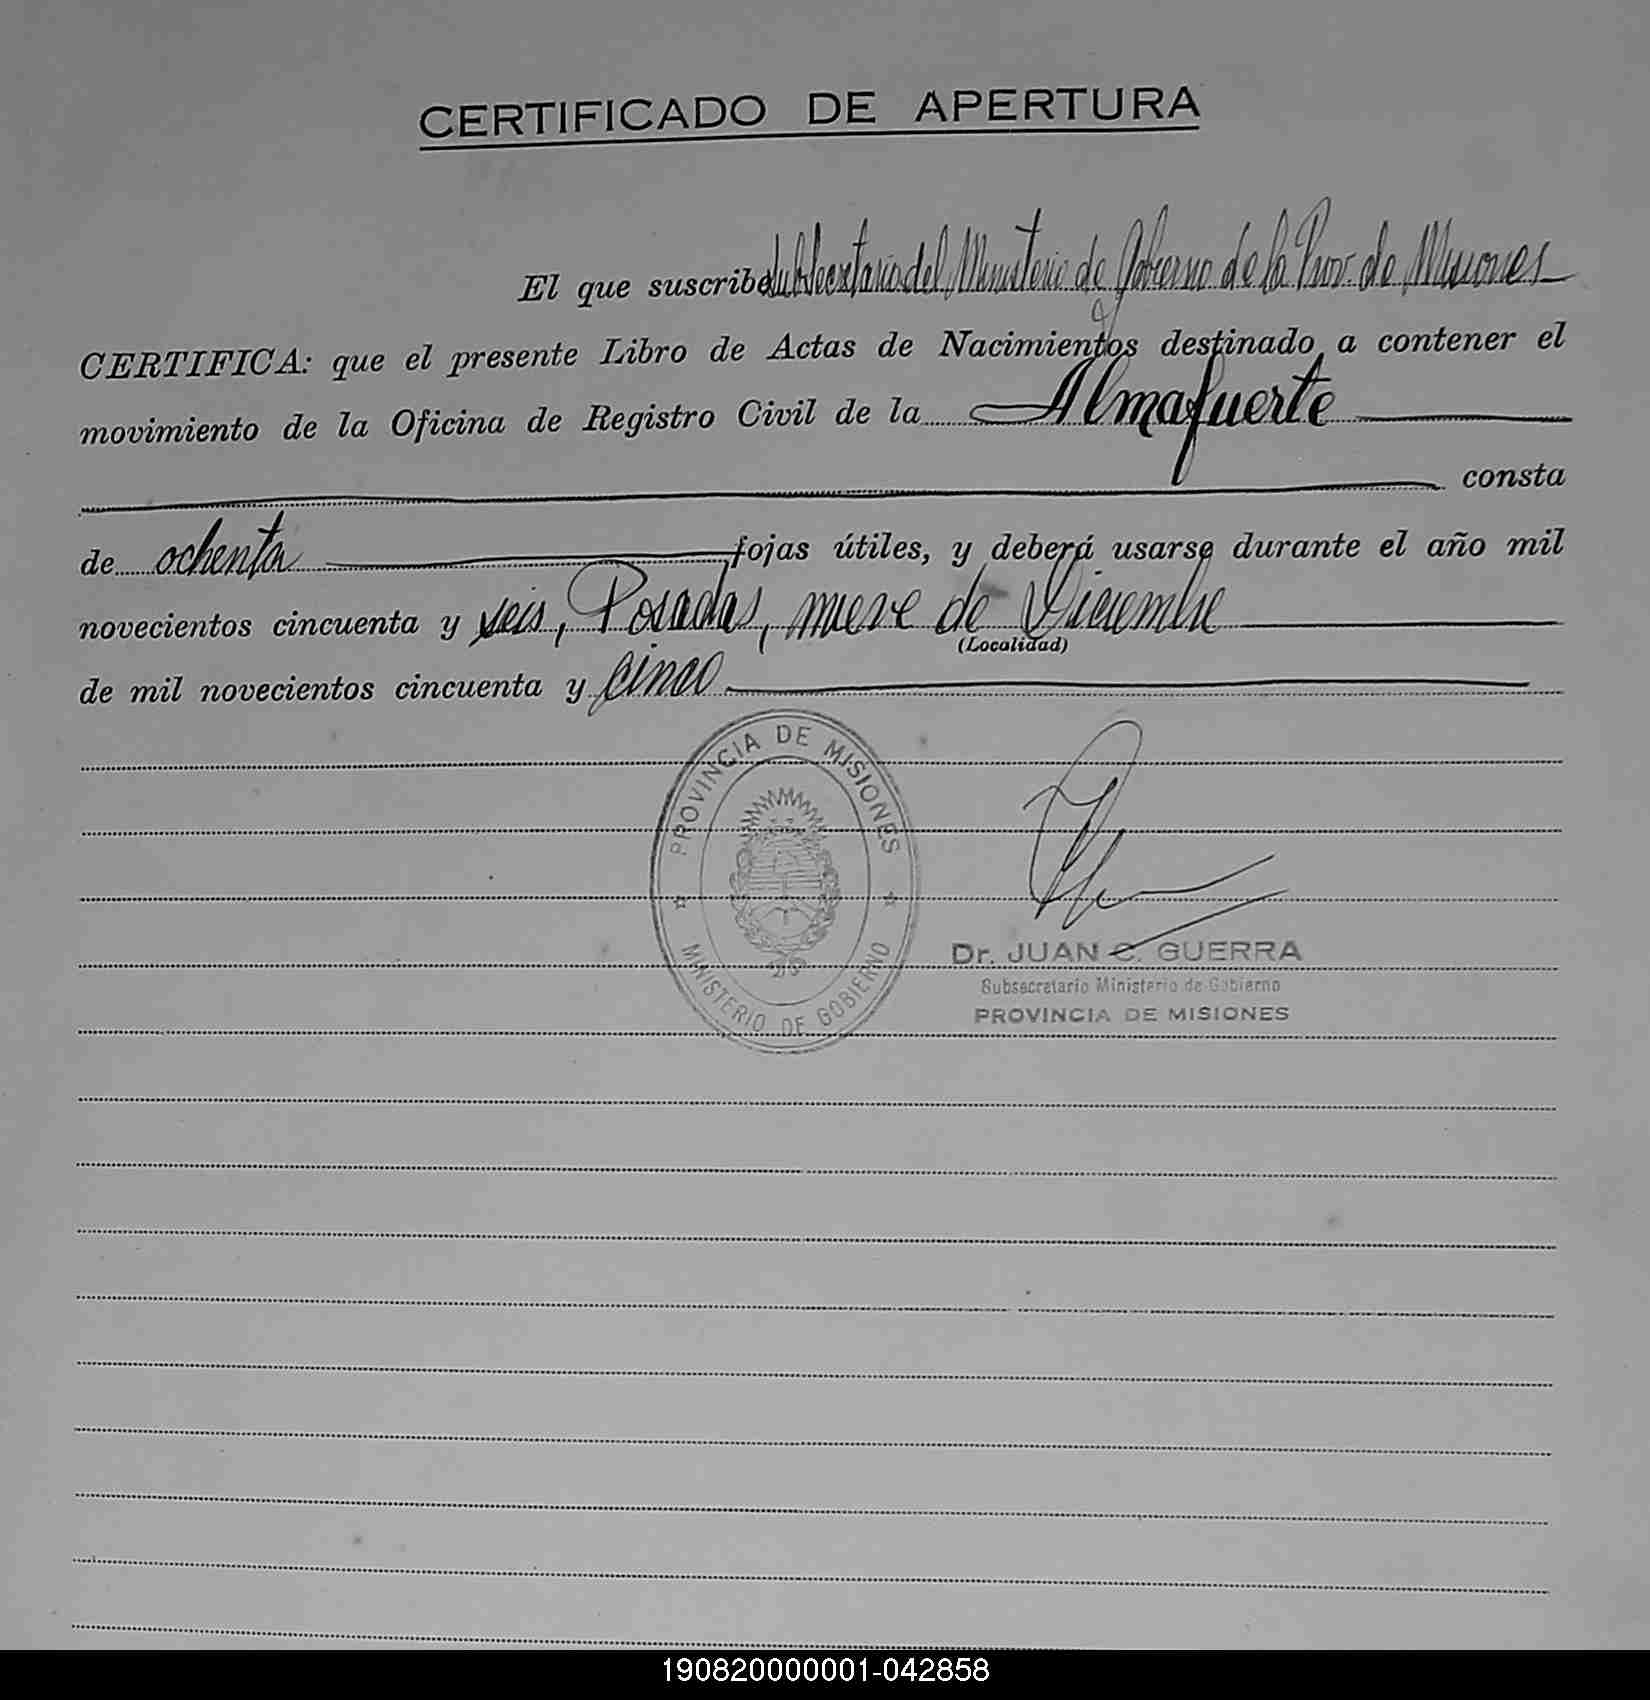 CERTIFICADO DE APERTURA
El que suscribe Subsecretario del Ministerio de Gobierno de la Prov. de Misiones
CERTIFICA: que el presente Libro de Actas de Nacimientos destinado a contener el
movimiento de la Oficina de Registro Civil de la Almafuerte
consta
de ochenta fojas útiles, y deberá usarse durante el año mil
novecientos cincuenta y seis, Posadas, nueve de Diciembre
(Localidad)
de mil novecientos cincuenta y cinco
PROVINCIA DE MISIONES
MINISTERIO DE GOBIERNO
Dr. JUAN C. GUERRA
Subsecretario Ministerio de Gobierno
PROVINCIA DE MISIONES
190820000001-042858